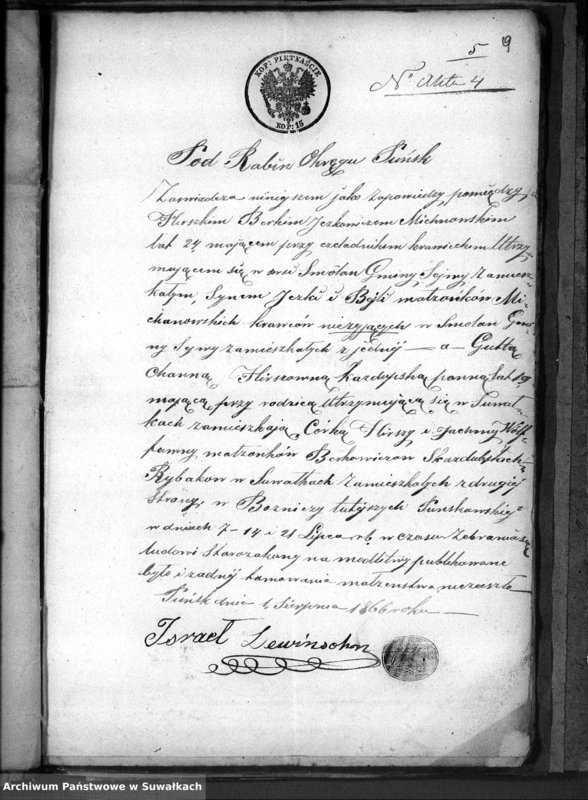 5 9
KOP: PIĘTNAŚCIE
KOP: 15
N° Akta 4
Pod Rabin Okręgu Puńsk
Zaswiadcza ninigszem jako Zapowiedzy pomiędzy
Hirszkim Berkim Jezkowiczem Michnowskim
lat 24 mającem przy czeladnikem krawieckem Utrzy-
mującem się w wsi Smolan Gminy Sejwy Zamiesz-
kałym Synem Jezki i Bejli małzonków Mi-
chanowskich krawców niezyjących w Smolan Gmi-
ny Sejwy zamieszkałych z jednej — a — Guttą
Channą Hirszowną Skazdupską panną lat 19
mającą przy rodzicą Utrzymującą się w Suwał-
kach zamieszkają, Córką Hirszy i Jachny
panny małzonków Berkowiczow Skazdubskich
Rybaków w Suwałkach Zamieszkałych z drugiej
Strony w Boznicy tutyszych Punskowskiej
w dniach 7 - 14 i 21 Lipca r b w czasu Zebrania się
ludowi Starozakony na modlitwy publikowane
było i zadnej tamowania małzenstwa niezaszło
Puńsk dnia 1 Sierpnia 1866 roku —
Israel Lewinsohn
Archiwum Państwowe w Suwałkach